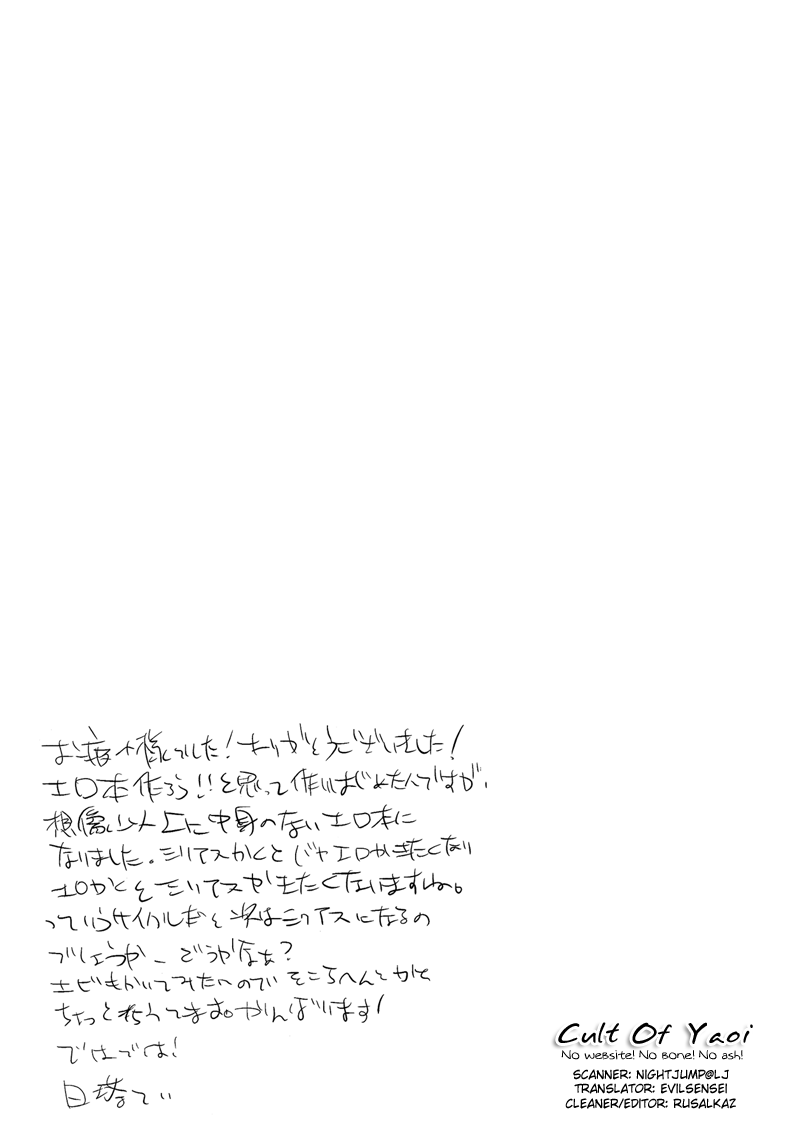 お疲れ様でした!ありがとうございました!
エロ本作ろう!!と思って作りはじめたんですが、
想像以上に中身のないエロ本に
なりました。シリアスかくと エロかきたくなり
エロかくとシリアスかきたくなりますね。
っていうサイクルだと次はシリアスになるの
でしょうか_どうかなぁ?
エビもかいてみたいので そこらへんとかを
ちょっと ます。がんばります!
ではでは!
日塔てい
Cult Of Yaoi
No website! No Bone! No ash!
SCANNER: NIGHTJUMP@LJ
TRANSLATOR: EVILSENSEI
CLEANER/EDITOR: RUSALKAZ